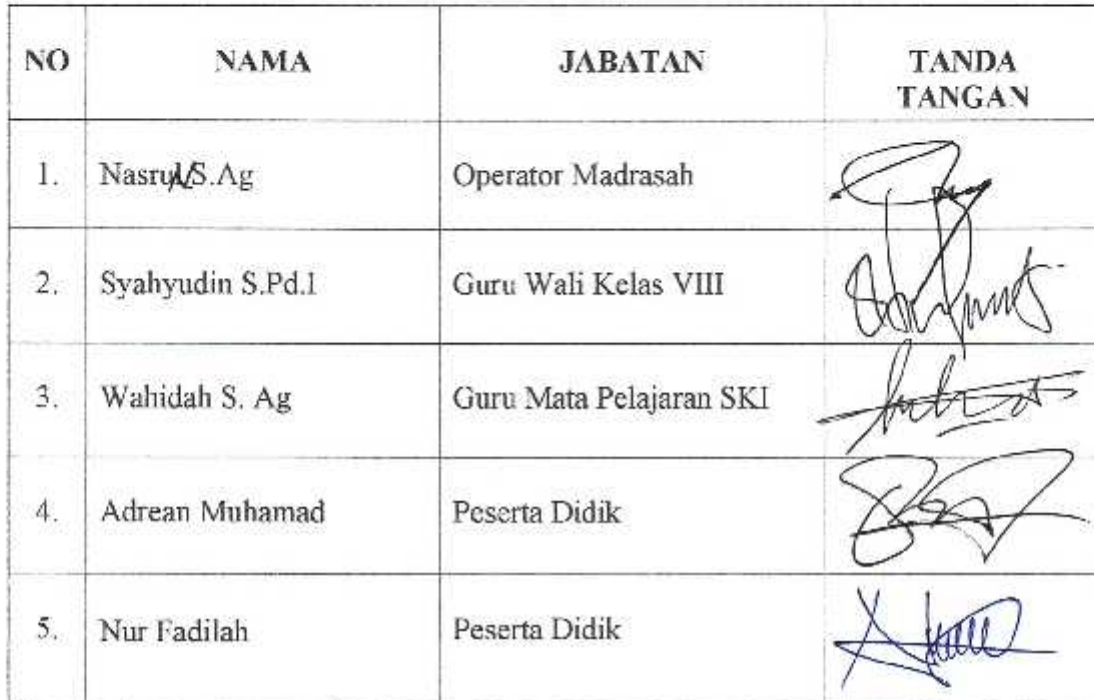 NO NAMA JABATAN TANDA TANGAN
1. Nasrul S.Ag Operator Madrasah
2. Syahyudin S.Pd.I Guru Wali Kelas VIII
3. Wahidah S. Ag Guru Mata Pelajaran SKI
4. Adrean Muhamad Peserta Didik
5. Nur Fadilah Peserta Didik